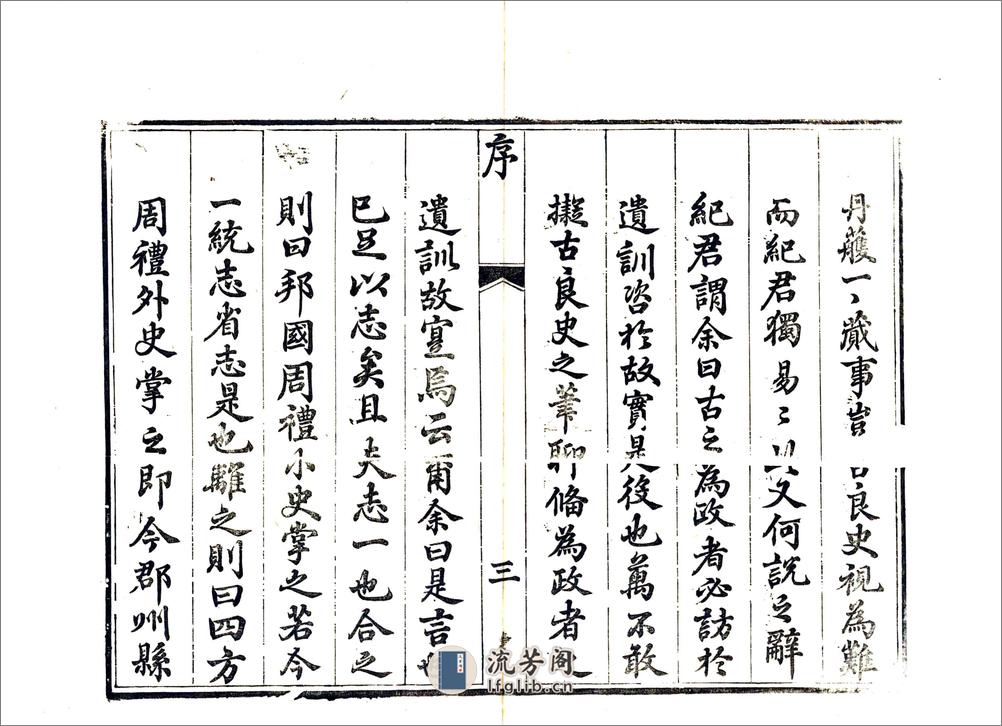 丹艧一〻蕆事豈 古良史視為難
而紀君獨易〻 文何說之辭
紀君謂余曰古之為政者必訪於
遺訓咨於故實是後也萬不敢
擬古良史之筆聊備為政者
序
三
遺訓故寔焉云爾余曰是言也
已足以志矣且夫志一也合之
則曰邦國周禮小史掌之若今
一統志省志是也離之則曰四方
周禮外史掌之即今郡州縣
流芳阁
lfglib.cn